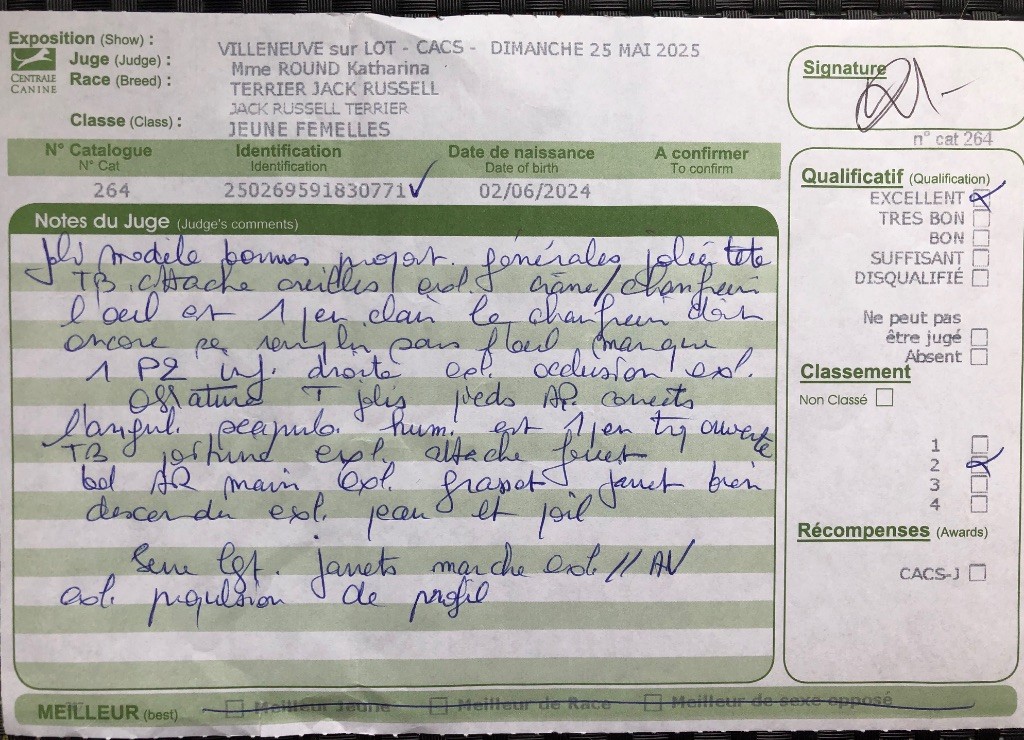 Exposition (Show) : VILLENEUVE sur LOT - CACS - DIMANCHE 25 MAI 2025
Juge (Judge) : Mme ROUND Katharina
CENTRALE CANINE
Race (Breed) : TERRIER JACK RUSSELL
JACK RUSSELL TERRIER
Classe (Class) : JEUNE FEMELLES
Signature
n° cat 264
N° Catalogue Identification Date de naissance A confirmer
N° Cat Identification Date of birth To confirm
264 250269591830771 02/06/2024
Notes du Juge (Judge's comments)
Joli modèle bonnes proport. générales jolie tete
TB. attache oreilles exl. crâne/chanfrein
l'oeil est 1 peu clair le chanfrein doit
encore se remplir sous l'oeil manque
1 P2 inf. droite exl. occlusion exl.
ossature T jolis pieds AP. corrects
l'angul. scapulo. hum. est 1 peu ouverte
TB poitrine exl. attache fouet
bel AR main exl. grasset jarret bien
descendu exl. peau et poil
Serre lgt. jarrets marche exl. // AV
exl. propulsion de profil
Qualificatif (Qualification)
EXCELLENT
TRES BON
BON
SUFFISANT
DISQUALIFIÉ
Ne peut pas
être jugé
Absent
Classement
Non Classé
1
2
3
4
Récompenses (Awards)
CACS-J
MEILLEUR (best) Meilleur Jeune Meilleur de Race Meilleur de sexe opposé